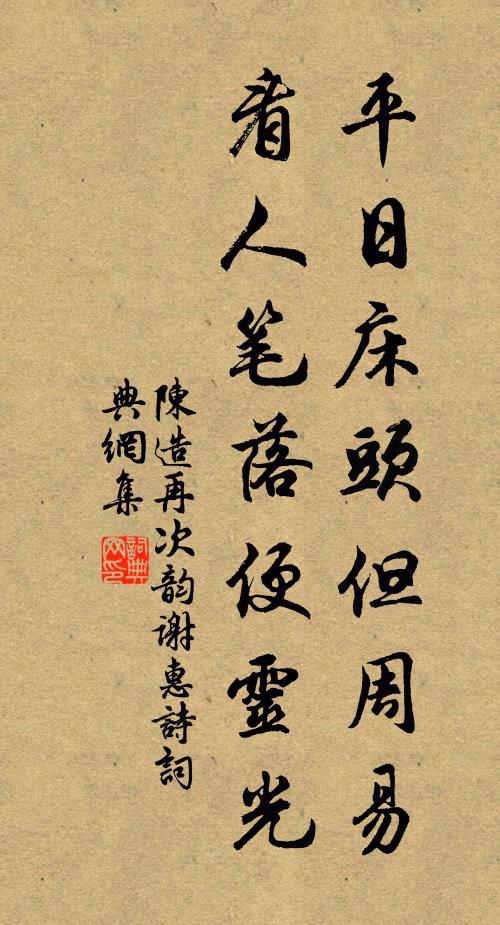 平日床頭但周易
看人笔落便靈光
陳造再次韵谢惠詩詞
典網集
詞典
网印